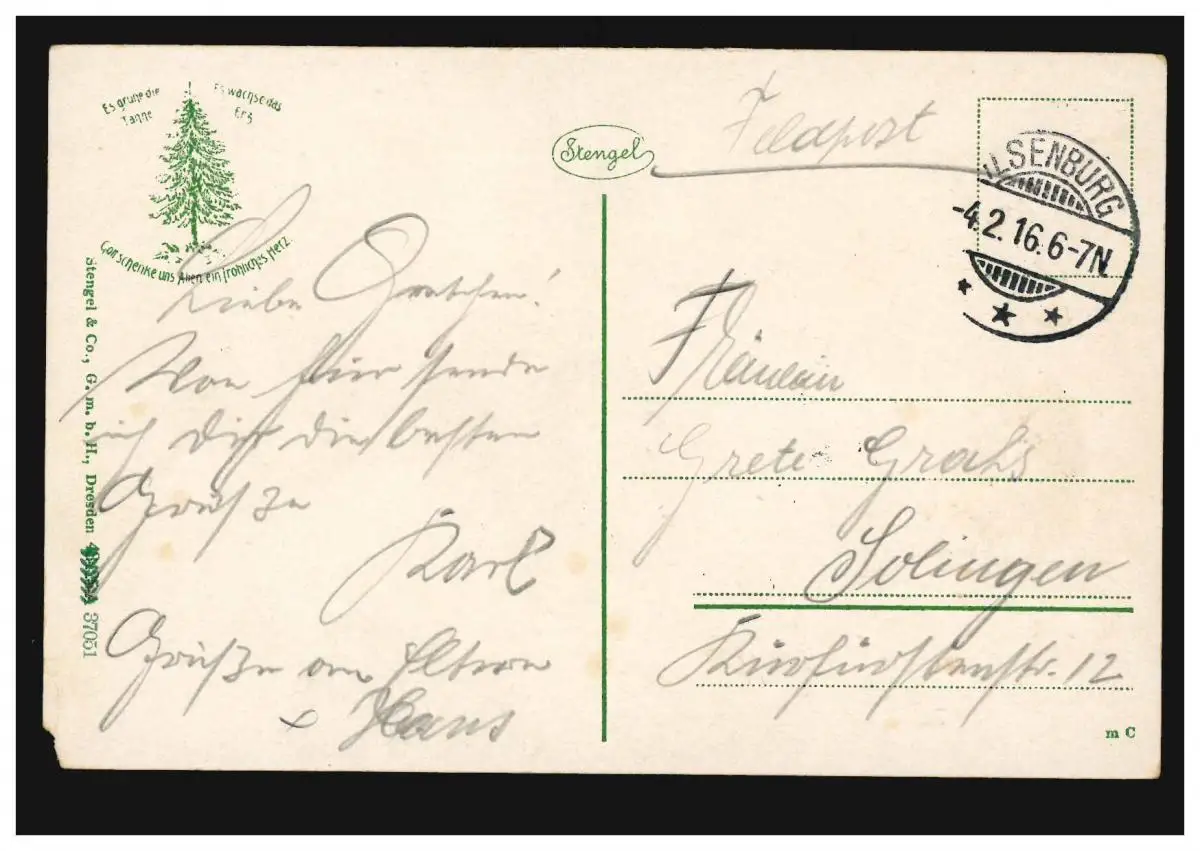 Es grüne die
Tanne
Es wachse das
Erz
Gott schenke uns Allen ein fröhliches Herz.
Stengel
Feldpost
ILSENBURG
-4.2.16.6-7N.
Liebe Gretchen!
Von hier sende
ich dir die besten
Grüße
Karl
Grüße an Eltern
+ Hans
Fräulein
Grete Grahs
Solingen
Kurfürstenstr. 12
Stengel & Co., G. m. b. H., Dresden
37051
m C